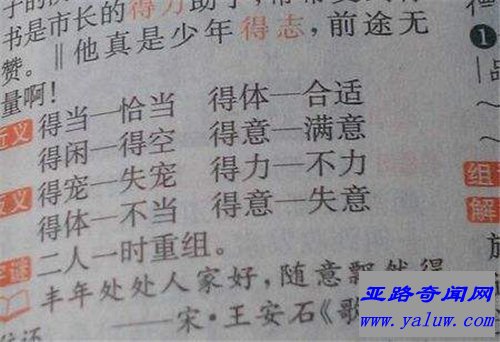 书是市长的得力助手,
赞。‖他真是少年得志,前途无
量啊!
近义 得当—恰当 得体—合适
得闲—得空 得意—满意
反义 得宠—失宠 得力—不力
得体—不当 得意—失意
字谜 二人一时重组。
丰年处处人家好,随意飘然得
——宋·王安石《歌
❶
组
解
亚路奇闻网
www.yaluw.com